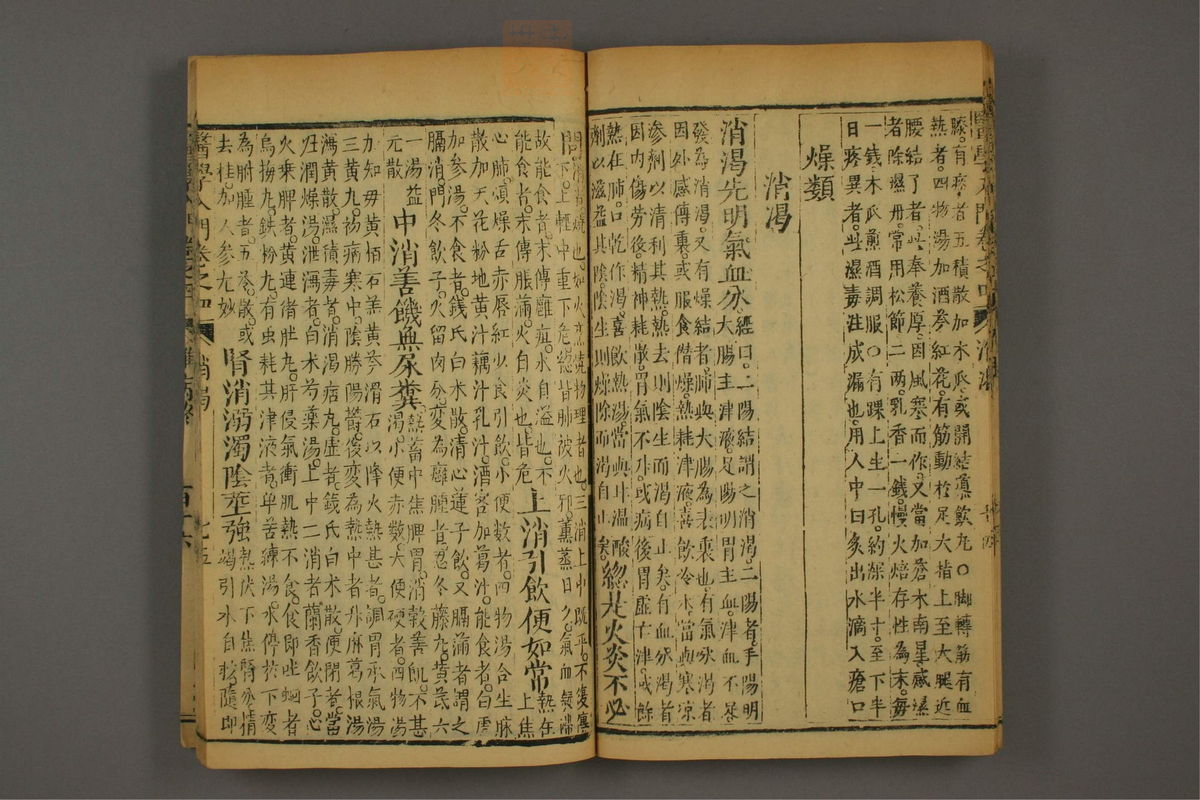 膝。有痰者五積散加木瓜或開結導飲丸○脚轉筋有血
熱者。四物湯加酒芩紅花。有筋動於足大指上至大腿近
腰結了者。此奉養厚。因風寒而作。又當加蒼木南星。感濕
者除濕丹。常用松節二兩。乳香一錢。慢火焙存性為末。每
一錢木瓜煎酒調服○有踝上生一孔。約深半寸。至下半
日疼異者。此濕毒注成漏也。用人中白炙出水滴入瘡口
燥類
消渴
消渴先明氣血分 經曰。二陽結謂之消渴。二陽者。手陽明
大腸主津液。足陽明胃主血。津血不足
發為消渴。又有燥結者。肺與大腸為表裏也。有氣分渴者
因外感傳裏。或服食僭燥。熱耗津液。喜飲冷水。當與寒凉
滲劑以清利其熱。熱去則陰生而渴自止矣。有血分渴者
因内傷勞後。精神耗散。胃氣不升。或病後胃虛亡津。或餘
熱在肺。口乾作渴。喜飲熱湯。當與甘温酸
劑以滋益其陰。陰生則燥除而渴自止矣。總是火炎不必
問 消者燒也。如火烹燒物理者也。三消上中既平。不復傳
下。上輕中重下危。總皆肺被火邪薰蒸日久。氣血凝滯
故能食者。末傳癰疽。水自溢也。不
能食者。末傳脹滿。火自炎也。皆危 上消引飲便如常 熱在
上焦
心肺。煩燥舌赤唇紅少食引飲。小便數者。四物湯合生脉
散加天花粉地黄汁藕汁乳汁。酒客加葛汁。能食者。白虎
加參湯。不食者。錢氏白术散。清心蓮子飲。又膈滿者。謂之
膈消。門冬飲子。久留肉分。變為癰腫者。忍冬藤丸。黄芪六
一湯益
元散 中消善饑無尿糞 熱畜中焦脾胃。消穀善飢。不甚
渴。小便赤數。大便硬者。四物湯
加知母黄栢石羔黄芩滑石以降火熱。甚者調胃承氣湯
三黄丸。初病寒中。陰勝陽鬱。後變為熱中者。升麻葛根湯
瀉黄散。濕積毒者。消渴痞丸。虛者。錢氏白术散。便閉者。當
歸潤燥湯。泄瀉者。白术芍藥湯。上中二消者蘭香飲子。心
火乘脾者。黄連猪肚丸。肝侵氣衝肌熱不食。食即吐蛔者
烏梅丸。鉄粉丸。有虫耗其津液者。單苦練湯。水停於下變
為胕腫者。五苓散或
去桂加人參尤妙 腎消溺濁陰莖強 熱伏下焦腎分。精
竭引水自救。隨即
醫學入門卷之四
消渴